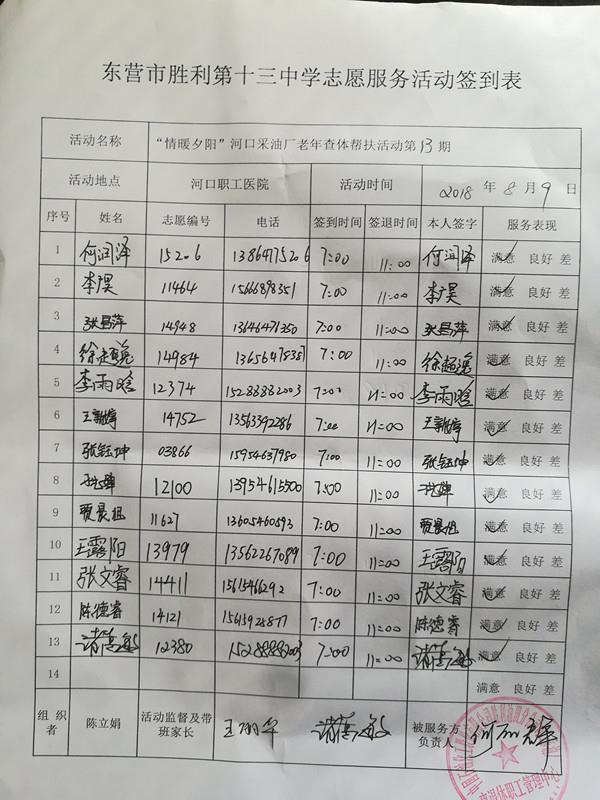 东营市胜利第十三中学志愿服务活动签到表
活动名称 “情暖夕阳”河口采油厂老年查体帮扶活动第13期
活动地点 河口职工医院 活动时间 2018年8月9日
序号 姓名 志愿编号 电话 签到时间 签退时间 本人签字 服务表现
1 何润泽 15206 13864775206 7:00 11:00 何润泽 满意 良好 差
2 李昊 11464 15666898351 7:00 11:00 李昊 满意 良好 差
3 张昌萍 14948 13646471350 7:00 11:00 张昌萍 满意 良好 差
4 徐超逸 14984 13656478387 7:00 11:00 徐超逸 满意 良好 差
5 李雨晗 12374 15288882003 7:00 11:00 李雨晗 满意 良好 差
6 王新婷 14752 13563392286 7:00 11:00 王新婷 满意 良好 差
7 张钰坤 03866 15954637980 7:00 11:00 张钰坤 满意 良好 差
8 12100 13954615500 7:00 11:00 满意 良好 差
9 贾晨旭 11627 13605460593 7:00 11:00 贾晨旭 满意 良好 差
10 王露阳 13979 13562267089 7:00 11:00 王露阳 满意 良好 差
11 张文睿 14411 7:00 11:00 张文睿 满意 良好 差
12 陈德睿 14121 7:00 11:00 陈德睿 满意 良好 差
13 诸葛敏 12380 15288882003 7:00 11:00 诸葛敏 满意 良好 差
14 满意 良好 差
组织者 陈立娟 活动监督及带班家长 诸葛敏 被服务方负责人